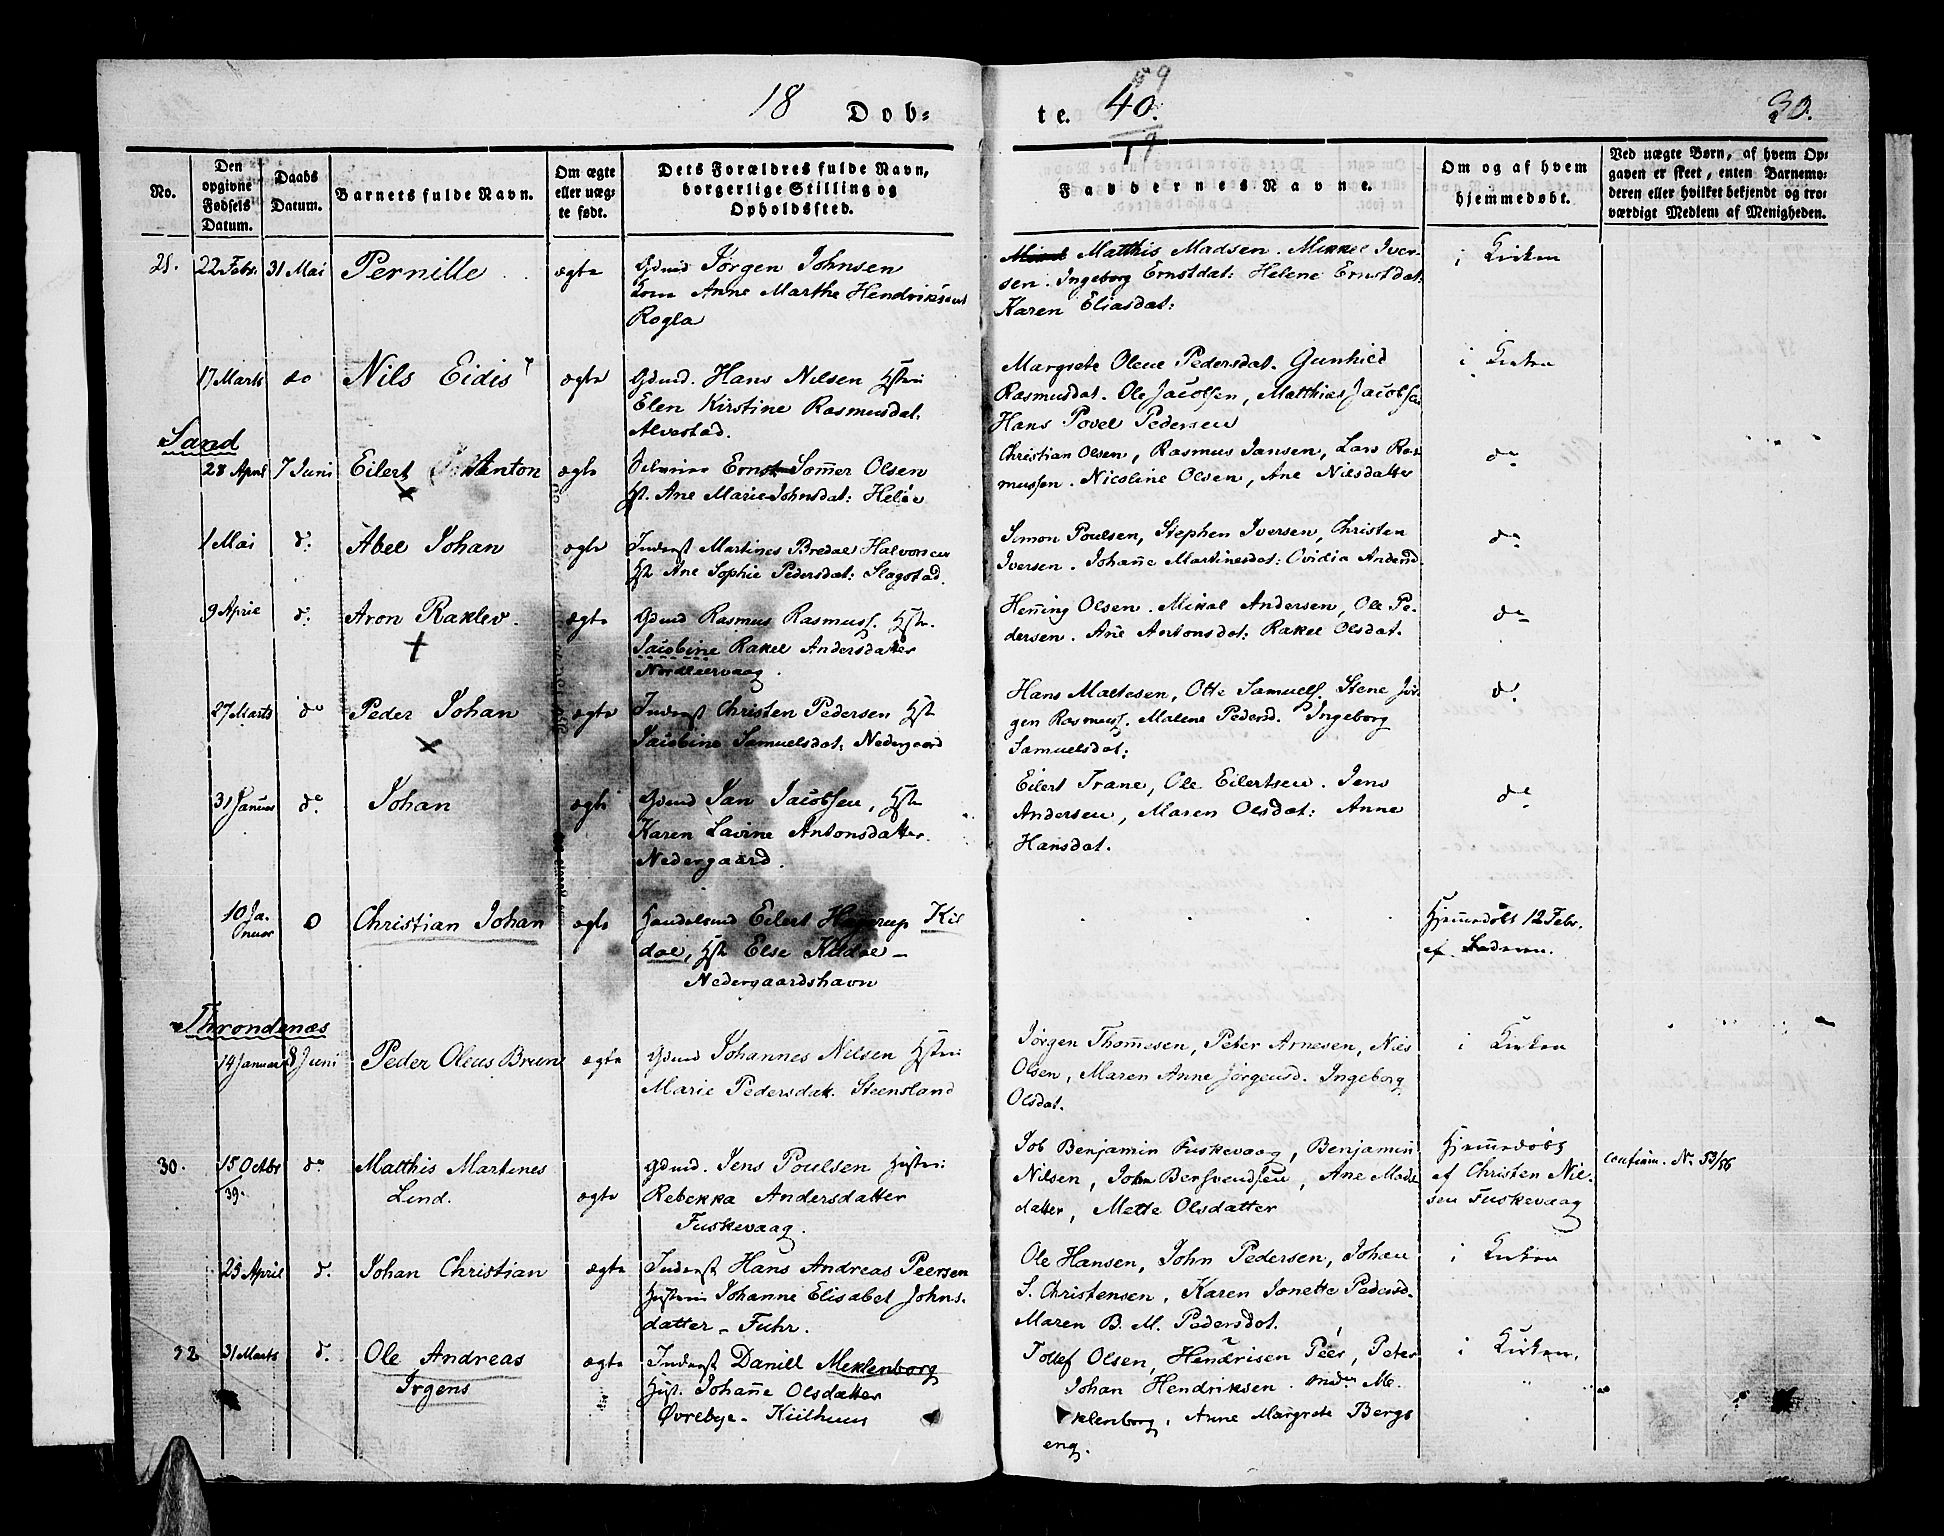 18 Dob= te. 40. 59
19
30.
No.
Den opgivne Fødsels Datum.
Daabs Datum.
Barnets fulde Navn.
Om ægte eller uæg= te født.
Dets Forældres fulde Navn, borgerlige Stilling og Opholdssted.
Faddernes Navne.
Om og af hvem hjemmedøbt.
Ved uægte Børn, af hvem Op= gaven er skeet, enten Barnemo= deren eller hvilket bekjendt og tro= værdigt Medlem af Menigheden.
21. 22 Febr. 31 Mai Pernille ægte Gdmd Jørgen Johnsen Matthis Madsen. Mikkel Iver= i Kirken
Kone Anne Marthe Hendriksdat sen. Ingeborg Ernstdat: Helene Ernstdat:
Rogla Karen Eliasdat:
17 Marts do Nils Eidis ægte Gdmd. Hans Nilsen Hstrii Margrete Olene Pedersdat. Gunhild i Kirken
Elen Kirstine Rasmusdat. Rasmusdat. Ole Jacobsen, Matthias Jacobsen
Alvestad. Hans Povel Pedersen
Sand
28 April 7 Juni Eilert Anton ægte Ernst Sommer Olsen Christian Olsen, Rasmus Jansen, Lars Ras= do
Hst. Ane Marie Johnsdat: Heløe mussen. Nicoline Olsen, Ane Nielsdatter
1 Mai d: Abel Johan ægte Inderst Martines Bredal Halvorsen Simon Poulsen, Stephen Iversen, Christen do
Hst Ane Sophie Pedersdat: Slagstad. Iversen. Johanne Martinesdat: Ovidia Andersd
9 April d: Aron Raklev. ægte Gdmd Rasmus Rasmuss. Hstr. Henning Olsen. Mikal Andersen, Ole Pe= do
Jacobine Rakel Andersdatter dersen. Ane Antonsdat: Rakel Olsdat.
Nordleervaag.
27 Marts do Peder Johan ægte Inderst Christen Pedersen Hst Hans Maltesen, Otte Samuels. Stene Jør= d:
Jacobine Samuelsdat: Nedergaard gen Rasmuss. Malene Pedersd. Ingeborg
Samuelsdat:
31 Januar do Johan ægte Gdmd Jan Jacobsen, Hst Eilert Trane, Ole Eilertsen. Jens do
Karen Lavine Antonsdatter. Andersen, Maren Olsdat: Anne
Nedergaard. Hansdat.
10 Ja= nuar 0 Christian Johan ægte Handelsmd Eilert Hagerup Kil= Hjemmedøbt 12 Febr.
dal, Hst Else Kildal – af Faderen.
Nedergaardshavn
Throndenæs
14 Januar 8 Juni Peder Oleus Bruun ægte Gdmd Johannes Nilsen Hstrii Jørgen Thommesen, Peter Arnesen, Niels i Kirken
Marie Pedersdat. Steensland Olsen, Maren Anne Jørgensd. Ingeborg
Olsdat.
30. 15 Octbr do Matthis Martines Gdmd. Jens Poulsen Hustrii Job Benjamin Fuskevaag, Benjamin Hjemmedøbt
/39. Lind. ægte Rebekka Andersdatter Nilsen, John Bersvendsen, Ane Mads= af Christen Nil= confirm. No 53/56
Fuskevaag. datter, Mette Olsdatter sen Fuskevaag
25 April d. Johan Christian ægte Inderst Hans Andreas Peersen Ole Hansen, John Pedersen, Johan i Kirken
Hustrii Johanne Elisabet Johns= S. Christensen, Karen Jonette Pedersd.
datter – Fuhr. Maren B. M. Pedersdat.
32 31 Marts d. Ole Andreas ægte Inderst Daniel Meklenborg Tollef Olsen, Hendriksen Peer, Peter i Kirken.
Irgens Hust. Johanne Olsdatter Johan Hendriksen. Me=
Øvrebye – Kiilhuus klenborg, Anne Margrete Bergs
eng.